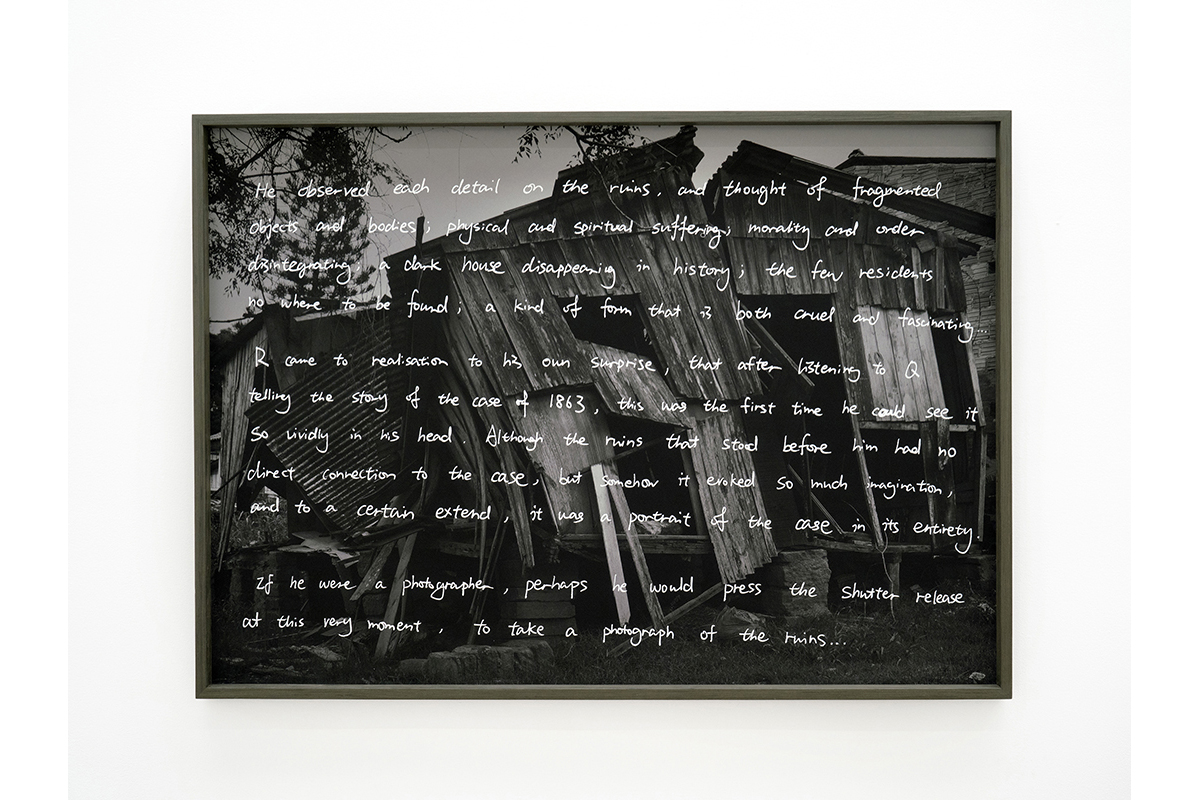 He observed each detail on the ruins, and thought of fragmented
objects and bodies; physical and spiritual suffering; morality and order
disintegrating; a dark house disappearing in history; the few residents
no where to be found; a kind of form that is both cruel and fascinating...
R came to realisation to his own surprise, that after listening to Q
telling the story of the case of 1863, this was the first time he could see it
so vividly in his head. Although the ruins that stood before him had no
direct connection to the case, but somehow it evoked so much imagination,
and to a certain extend, it was a portrait of the case in its entirety.
If he were a photographer, perhaps he would press the shutter release
at this very moment, to take a photograph of the ruins...